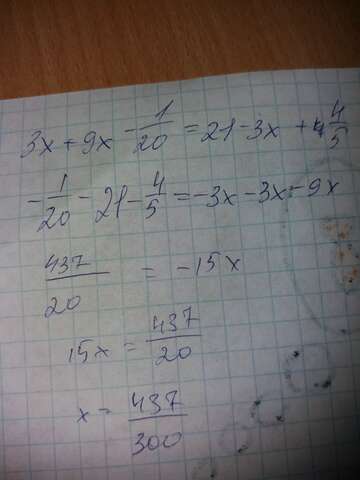 3x + 9x - 1/20 = 21 - 3x + 4 4/5
- 1/20 - 21 - 4/5 = -3x - 3x - 9x
437/20 = -15x
15x = 437/20
x = 437/300